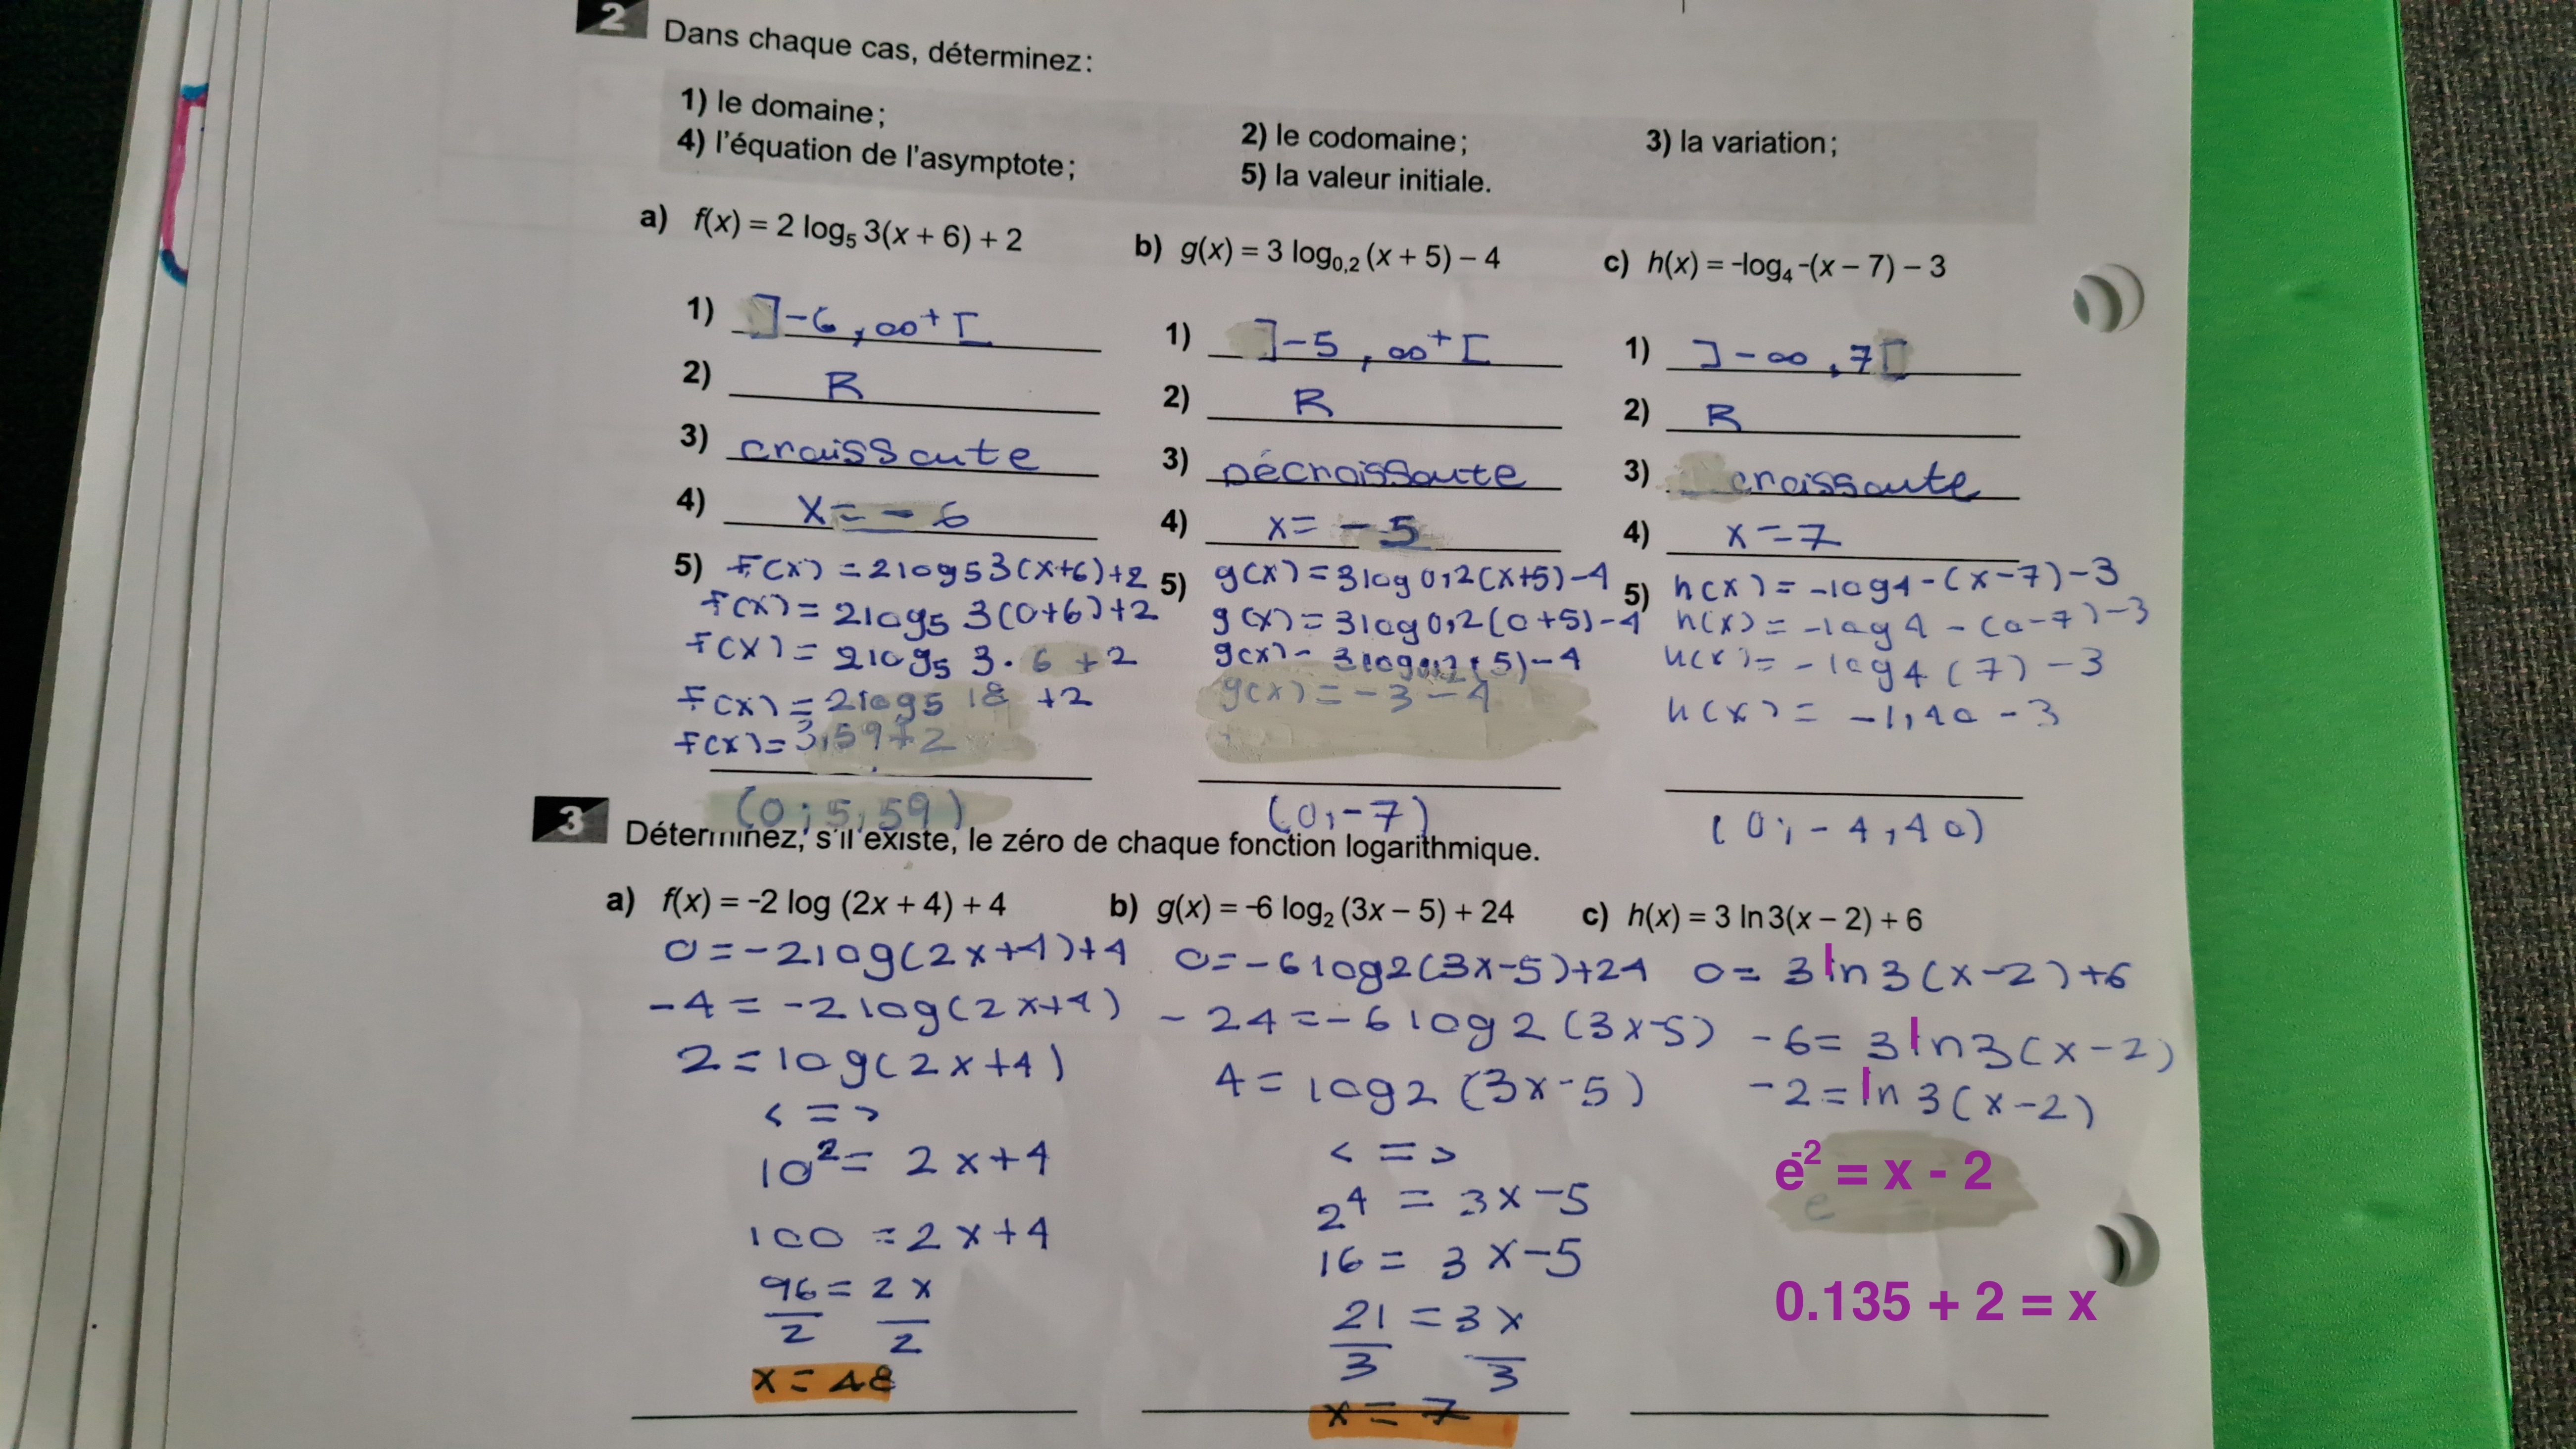 2 Dans chaque cas, déterminez :
1) le domaine ; 2) le codomaine ; 3) la variation ;
4) l'équation de l'asymptote ; 5) la valeur initiale.
a) f(x) = 2 log₅ 3(x + 6) + 2
1) ]-6, ∞⁺[
2) R
3) craissante
4) x = -6
5) F(x) = 2log53(x+6)+2
f(x) = 2log₅ 3(0+6)+2
F(x) = 2log₅ 3·6 +2
F(x) = 2log5 18 +2
F(x) = 3,59+2
(0 ; 5,59)
b) g(x) = 3 log₀,₂ (x + 5) – 4
1) ]-5, ∞⁺[
2) R
3) Décraissante
4) x = -5
5) g(x) = 3log0,2(x+5)-4
g(x) = 3log0,2(0+5)-4
g(x) = 3log0,2(5)-4
g(x) = -3-4
(0,-7)
c) h(x) = -log₄ -(x – 7) – 3
1) ]-∞, 7[
2) R
3) craissante
4) x = 7
5) h(x) = -log4-(x-7)-3
h(x) = -log4-(0-7)-3
h(x) = -log4(7)-3
h(x) = -1,40-3
(0; -4,40)
3 Déterminez, s'il existe, le zéro de chaque fonction logarithmique.
a) f(x) = -2 log (2x + 4) + 4
0=-2log(2x+4)+4
-4=-2log(2x+4)
2=log(2x+4)
<=>
10²=2x+4
100=2x+4
96/2=2x/2
x=48
b) g(x) = -6 log₂ (3x – 5) + 24
0=-6log2(3x-5)+24
-24=-6log2(3x-5)
4=log2(3x-5)
<=>
2⁴=3x-5
16=3x-5
21/3=3x/3
x=7
c) h(x) = 3 ln 3(x – 2) + 6
0=3ln3(x-2)+6
-6=3ln3(x-2)
-2=ln3(x-2)
e⁻² = x - 2
e
0.135 + 2 = x